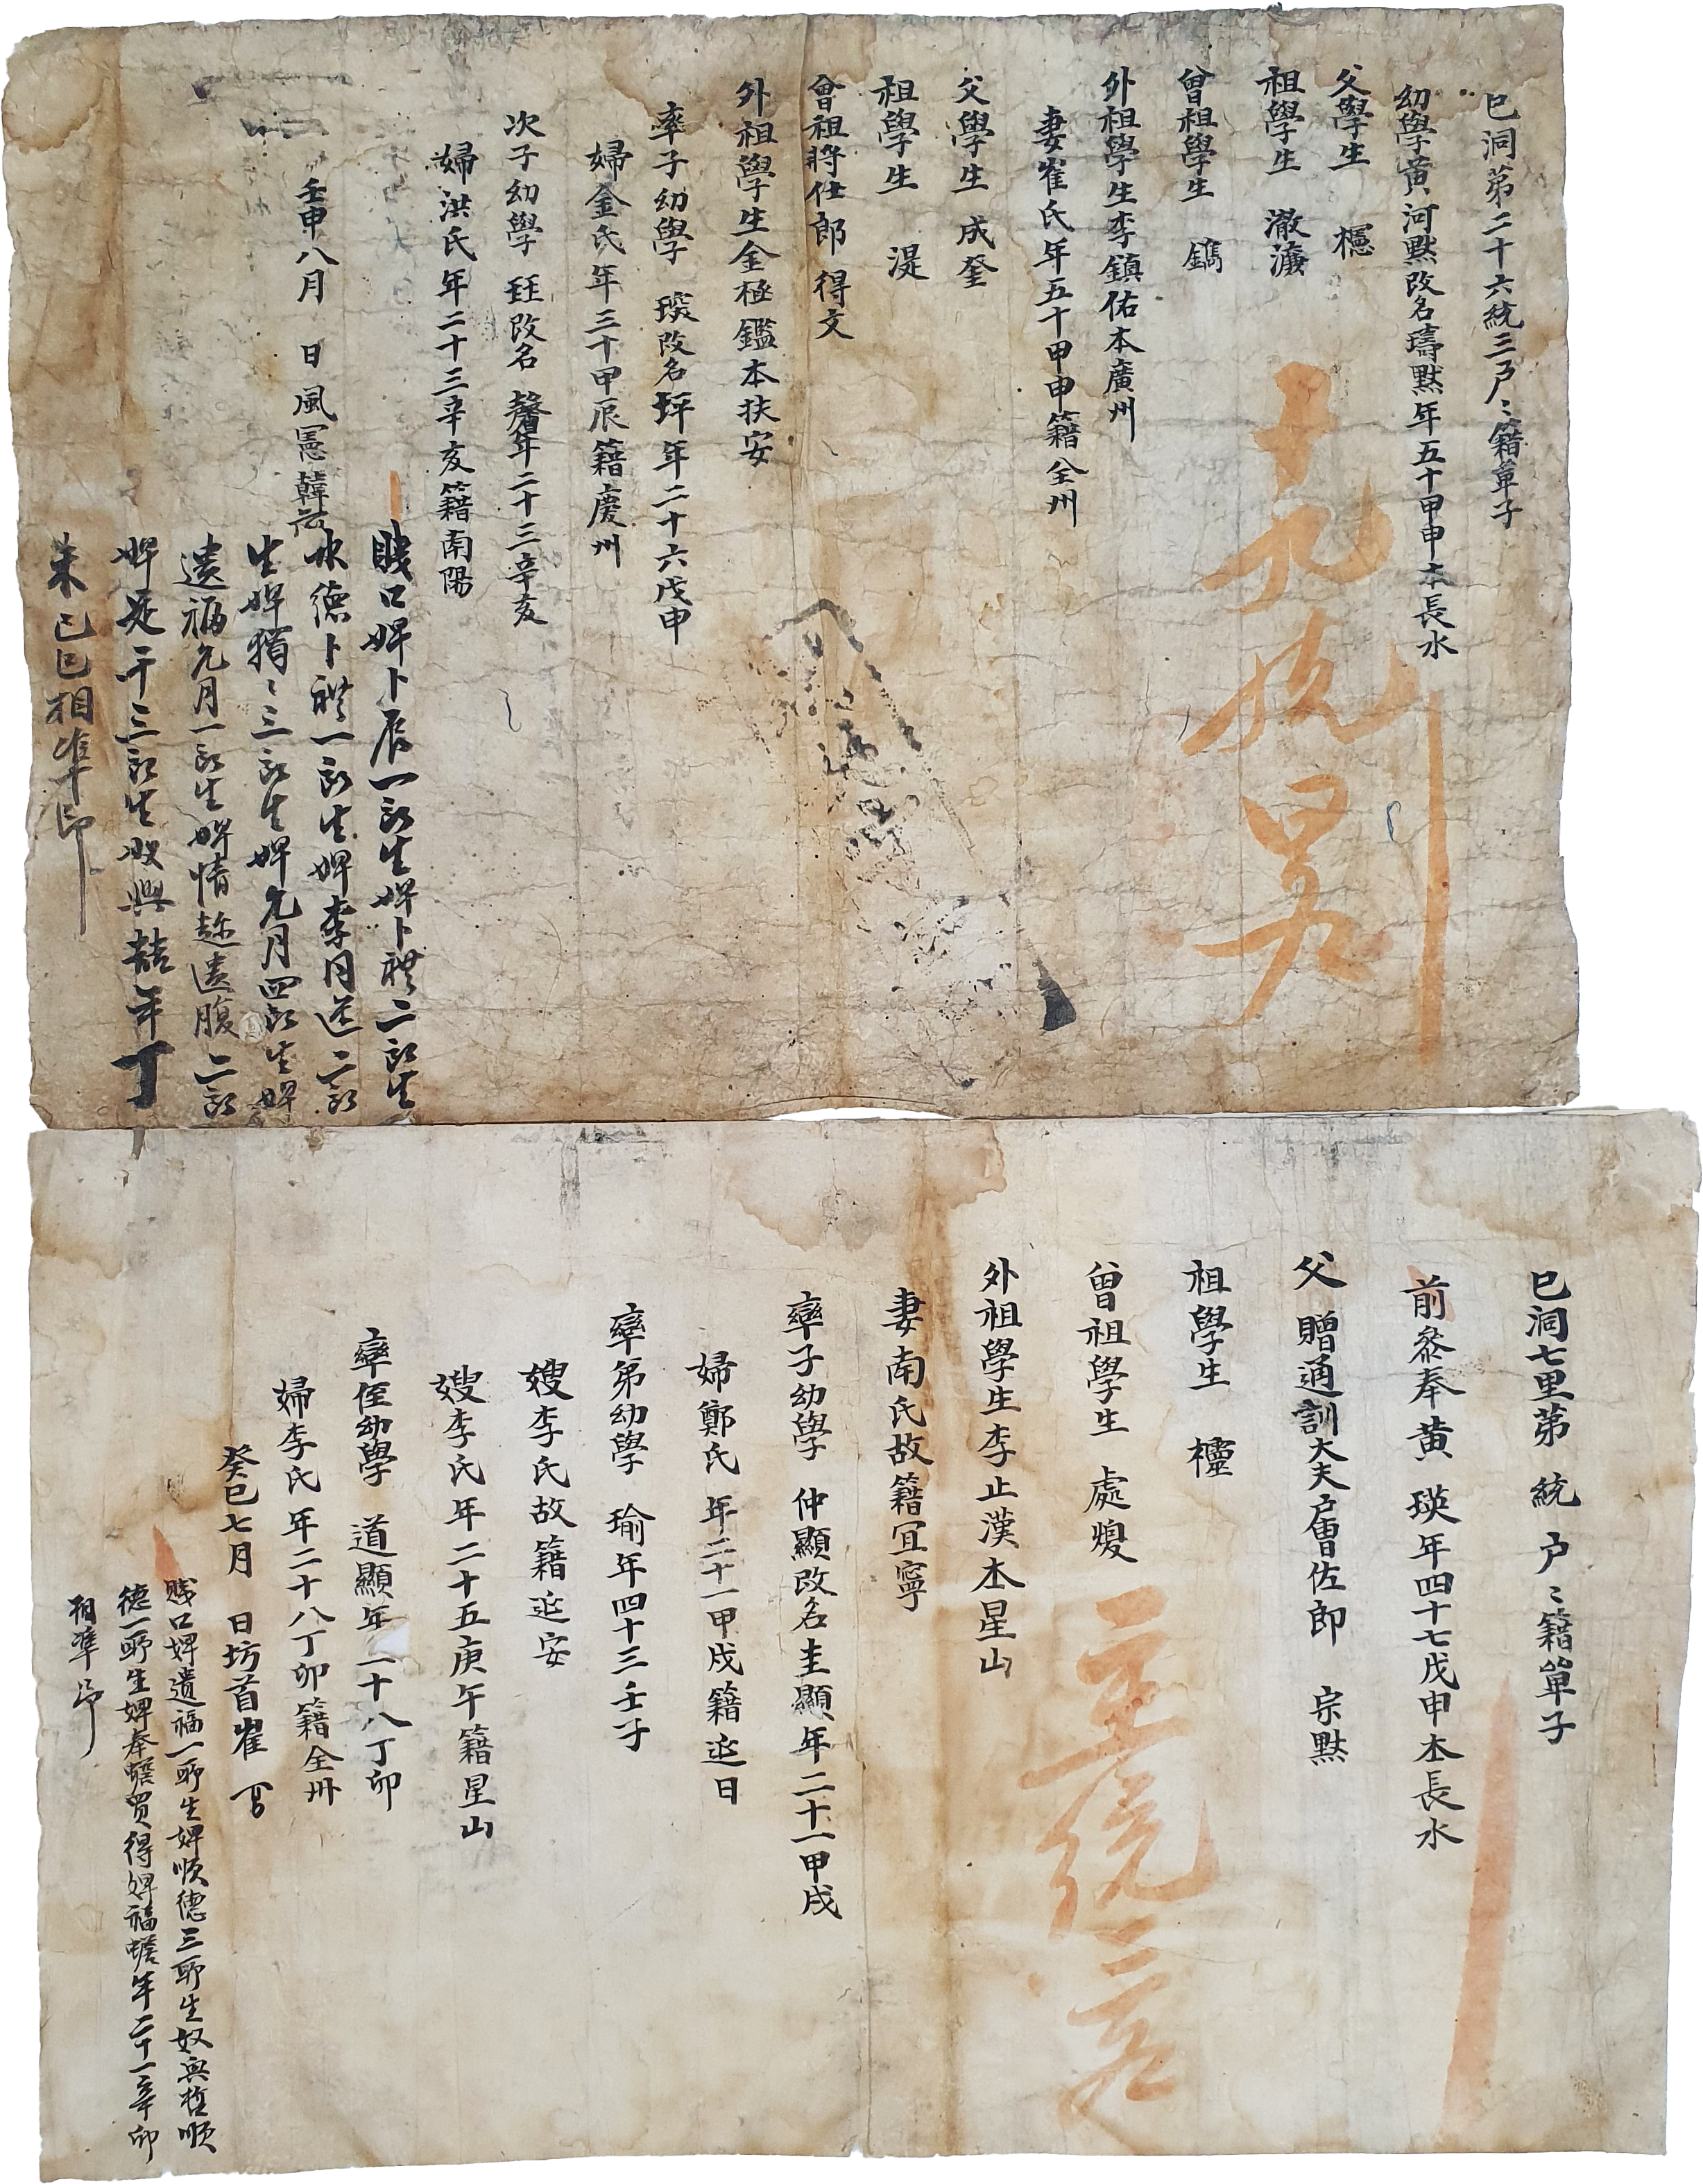 巳洞第二十六統三戶〻籍單子
幼學黃河默改名璹默年五十甲申本長水
父學生 櫶
祖學生 澈漢
曾祖學生 鐫
外祖學生李鎭佑本廣州
妻崔氏年五十甲申籍全州
父學生 成奎
祖學生 湜
曾祖將仕郎 得文
外祖學生金極鑑本扶安
率子幼學 琰改名坪年二十六戊申
婦金氏年三十甲辰籍慶州
次子幼學 珏改名 馨年二十三辛亥
婦洪氏年二十三辛亥籍南陽
壬申八月 日風憲韓
賤口婢卜辰一所生婢卜禮二所生
水德卜禮一所生婢季月送二所
生婢獨〻三所生婢允月四所生婢
遺福允月一所生婢情趂遺腹二所
婢是干三所生奴興喆年丁
未 己巳相準印
十九統
巳洞七里第 統 戶〻籍單子
前叅奉黃 瑛年四十七戊申本長水
父 贈通訓大夫戶曹佐郎 宗默
祖學生 櫶
曾祖學生 處煥
外祖學生李止漢本星山
妻南氏故籍宜寧
率子幼學 仲顯改名圭顯年二十一甲戌
婦鄭氏 年二十一甲戌籍延日
率弟幼學 瑜年四十三壬子
嫂李氏故籍延安
嫂李氏年二十五庚午籍星山
率侄幼學 道顯年二十八丁卯
婦李氏年二十八丁卯籍全州
癸巳七月 日坊首崔
賤口婢遺福一所生婢順德三所生奴興哲順
德一所生婢奉蟾買得婢福蟾年二十一辛卯
相準印
統三